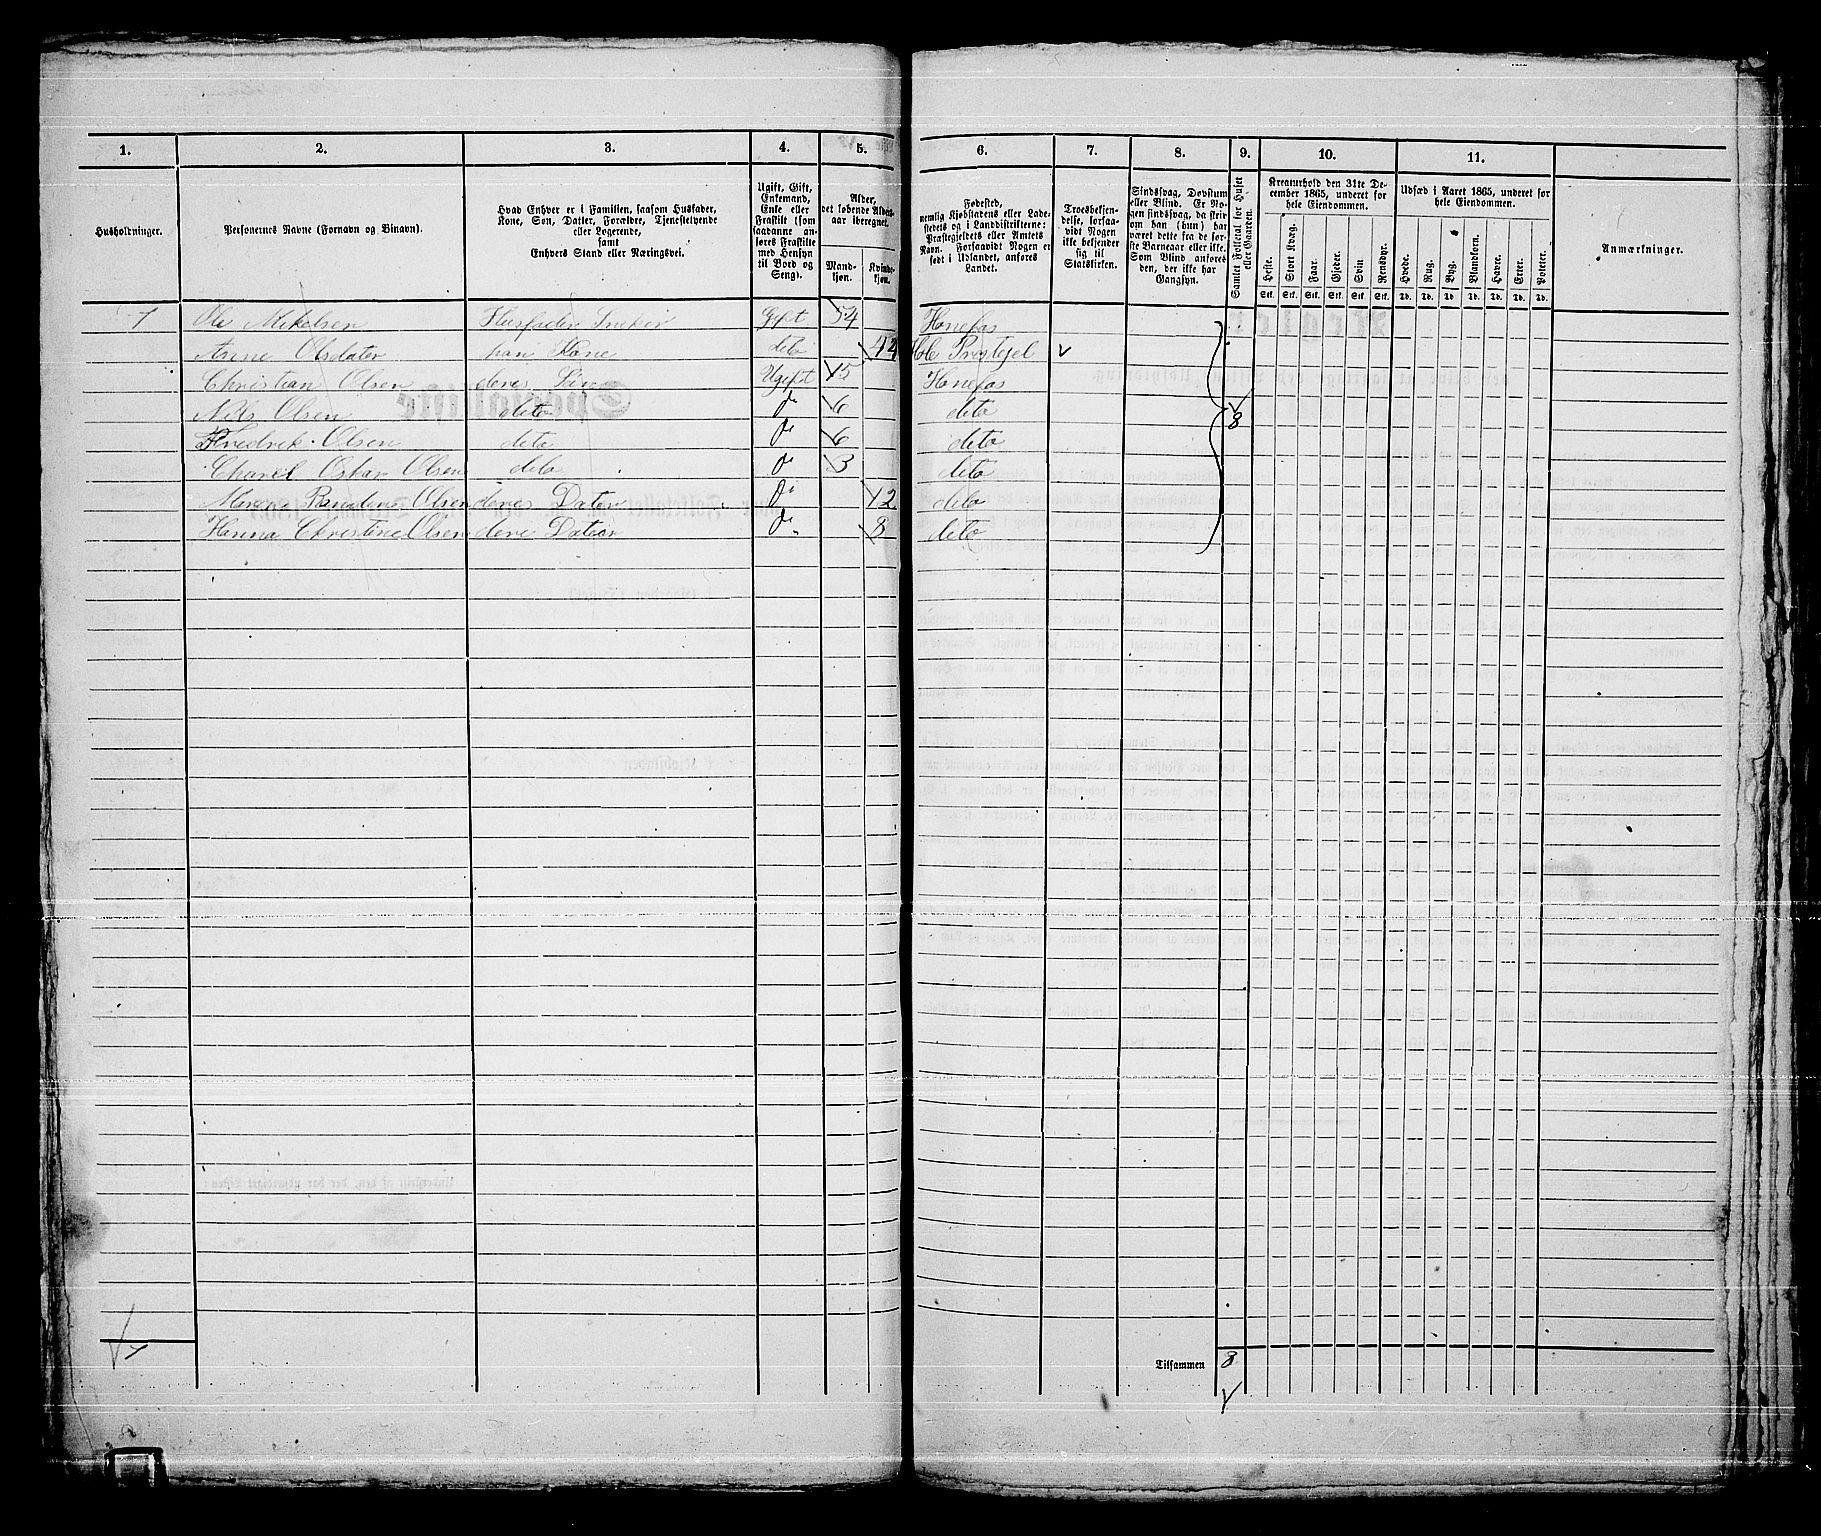 1. 2. 3. 4. 5. 6. 7. 8. 9. 10. 11.
Husholdninger.
Personernes Navne (Fornavn og Binavn).
Hvad Enhver er i Familien, saasom Husfader,
Kone, Søn, Datter, Forældre, Tjenestetyende
eller Logerende,
samt
Enhvers Stand eller Næringsvei.
Ugift, Gift,
Enkemand,
Enke eller
Fraskilt (som
saadanne an-
føres Fraskilte
med Hensyn
til Bord og
Seng).
Alder,
det løbende Alders-
aar iberegnet.
Mand-
kjøn.
Kvinde-
kjøn.
Fødested,
nemlig Kjøbstadens eller Lade-
stedets og i Landdistrikterne:
Præstegjeldets eller Amtets
Navn. Forsaavidt Nogen er
født i Udlandet, anføres
Landet.
Troesbekjen-
delse, forsaa-
vidt Nogen
ikke bekjender
sig til
Statskirken.
Sindssvag, Døvstum
eller Blind. Er No-
gen sindssvag, da skriv
om han (hun) har
været dette fra de før-
ste Barneaar eller ikke.
Som Blind anføres
den, der ikke har
Gangsyn.
Samlet Folketal for Huset
eller Gaarden.
Kreaturhold den 31te De-
cember 1865, underet for
hele Eiendommen.
Heste. Stort Kvæg. Faar. Gjeder. Svin Rensdyr.
Stk. Stk. Stk. Stk. Stk. Stk.
Udsæd i Aaret 1865, underet for
hele Eiendommen.
Hvede. Rug. Byg. Blandkorn. Havre. Erter. Poteter.
Td. Td. Td. Td. Td. Td. Td.
Anmærkninger.
1 Ole Mikelsen Husfader Sneker Gift 54 Honefos
Anne Olsdater han Kone deto 44 Hole Prestejel
Christian Olsen deres Sön Ugift 15 Honefos
Nils Olsen deto do 6 deto 8
Fredrik Olsen deto do 6 deto
Charel Oskar Olsen deto do 3 deto
Olsen deres Dater do 12 deto
Hanna Christine Olsen deres Dater do 8 deto
Tilsammen 8